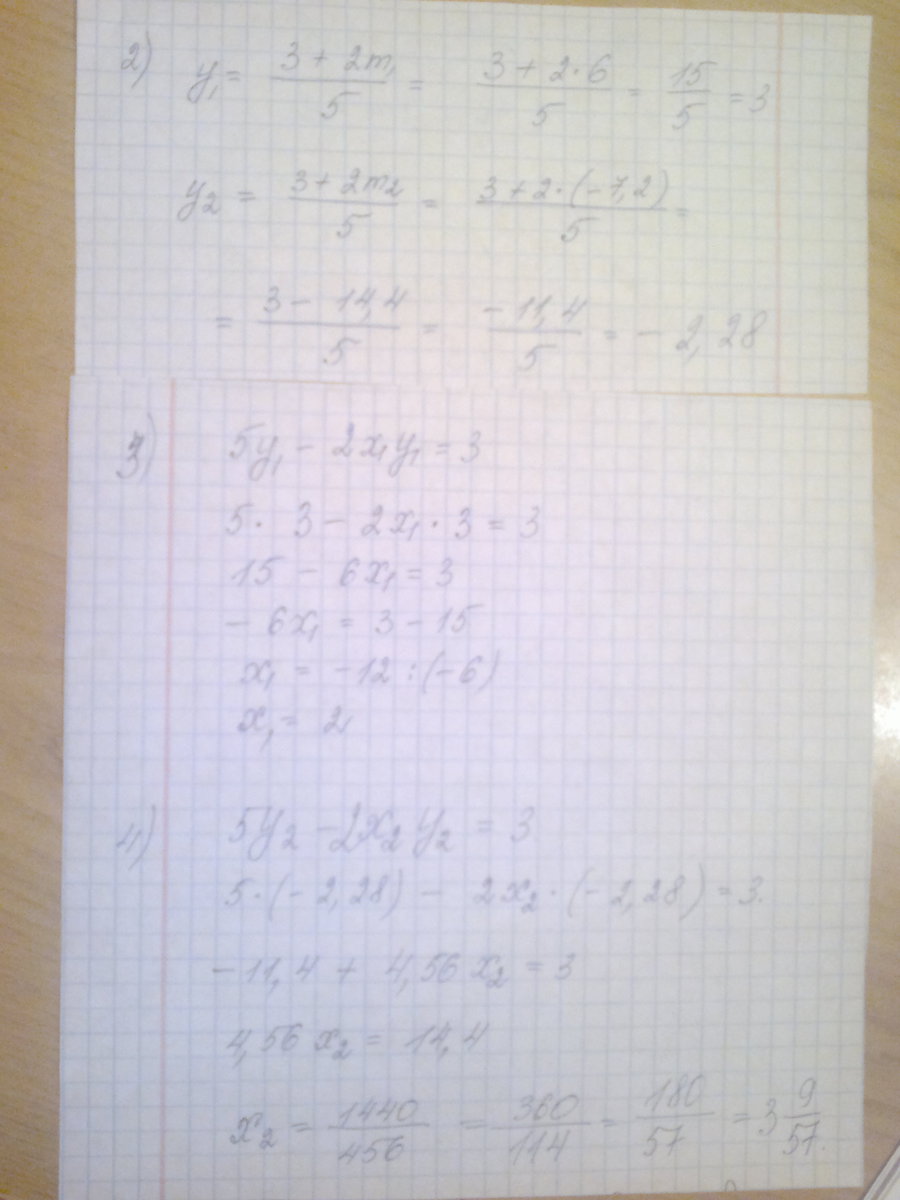 2) y₁ = (3 + 2m₁)/5 = (3 + 2·6)/5 = 15/5 = 3
y₂ = (3 + 2m₂)/5 = (3 + 2·(-7,2))/5 =
= (3 - 14,4)/5 = (-11,4)/5 = - 2,28
3) 5y₁ - 2x₁y₁ = 3
5· 3 - 2x₁ · 3 = 3
15 - 6x₁ = 3
- 6x₁ = 3 - 15
x₁ = -12 : (-6)
x₁ = 2
4) 5y₂ - 2x₂y₂ = 3
5·(-2,28) - 2x₂·(-2,28) = 3.
-11,4 + 4,56 x₂ = 3
4,56 x₂ = 14,4
x₂ = 1440/456 = 360/114 = 180/57 = 3 9/57.